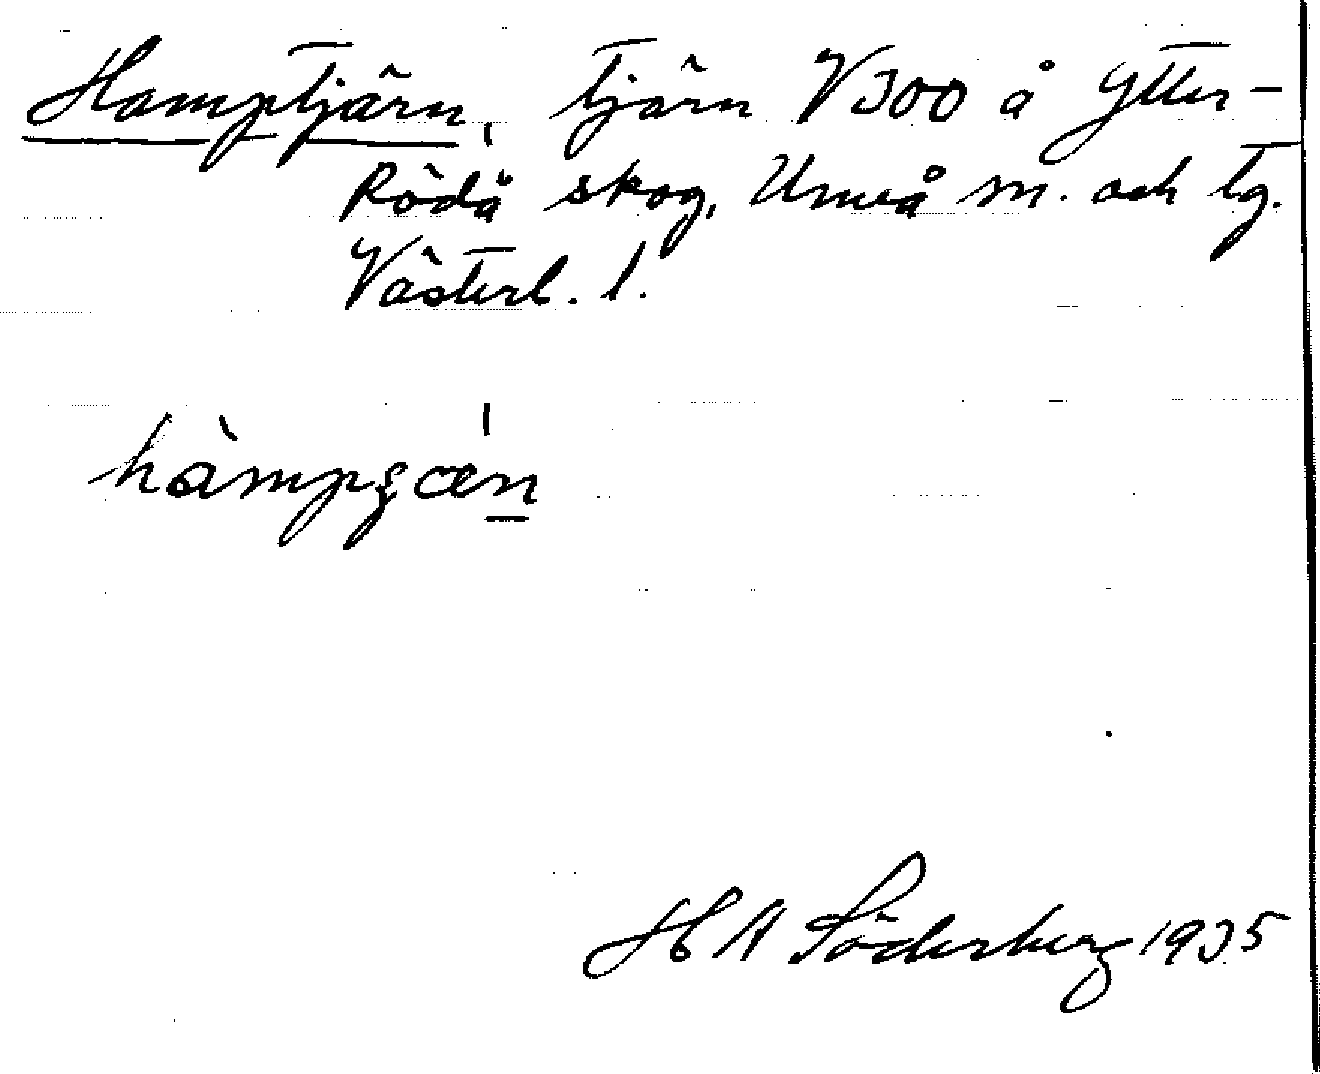 Hamptjärn, tjärn V300 å Ytter-
Rödå skog, Umeå m. och tg.
Västerb. l.
H A Söderberg 1935